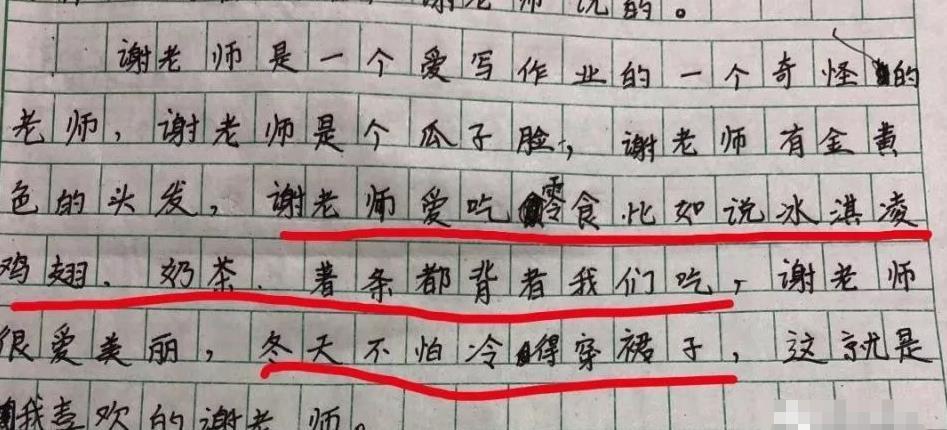 谢老师说的。
谢老师是一个爱写作业的一个奇怪的
老师，谢老师是个瓜子脸，谢老师有金黄
色的头发，谢老师爱吃零食比如说冰淇凌
鸡翅、奶茶、著条都背着我们吃，谢老师
很爱美丽，冬天不怕冷得穿裙子，这就是
我喜欢的谢老师。